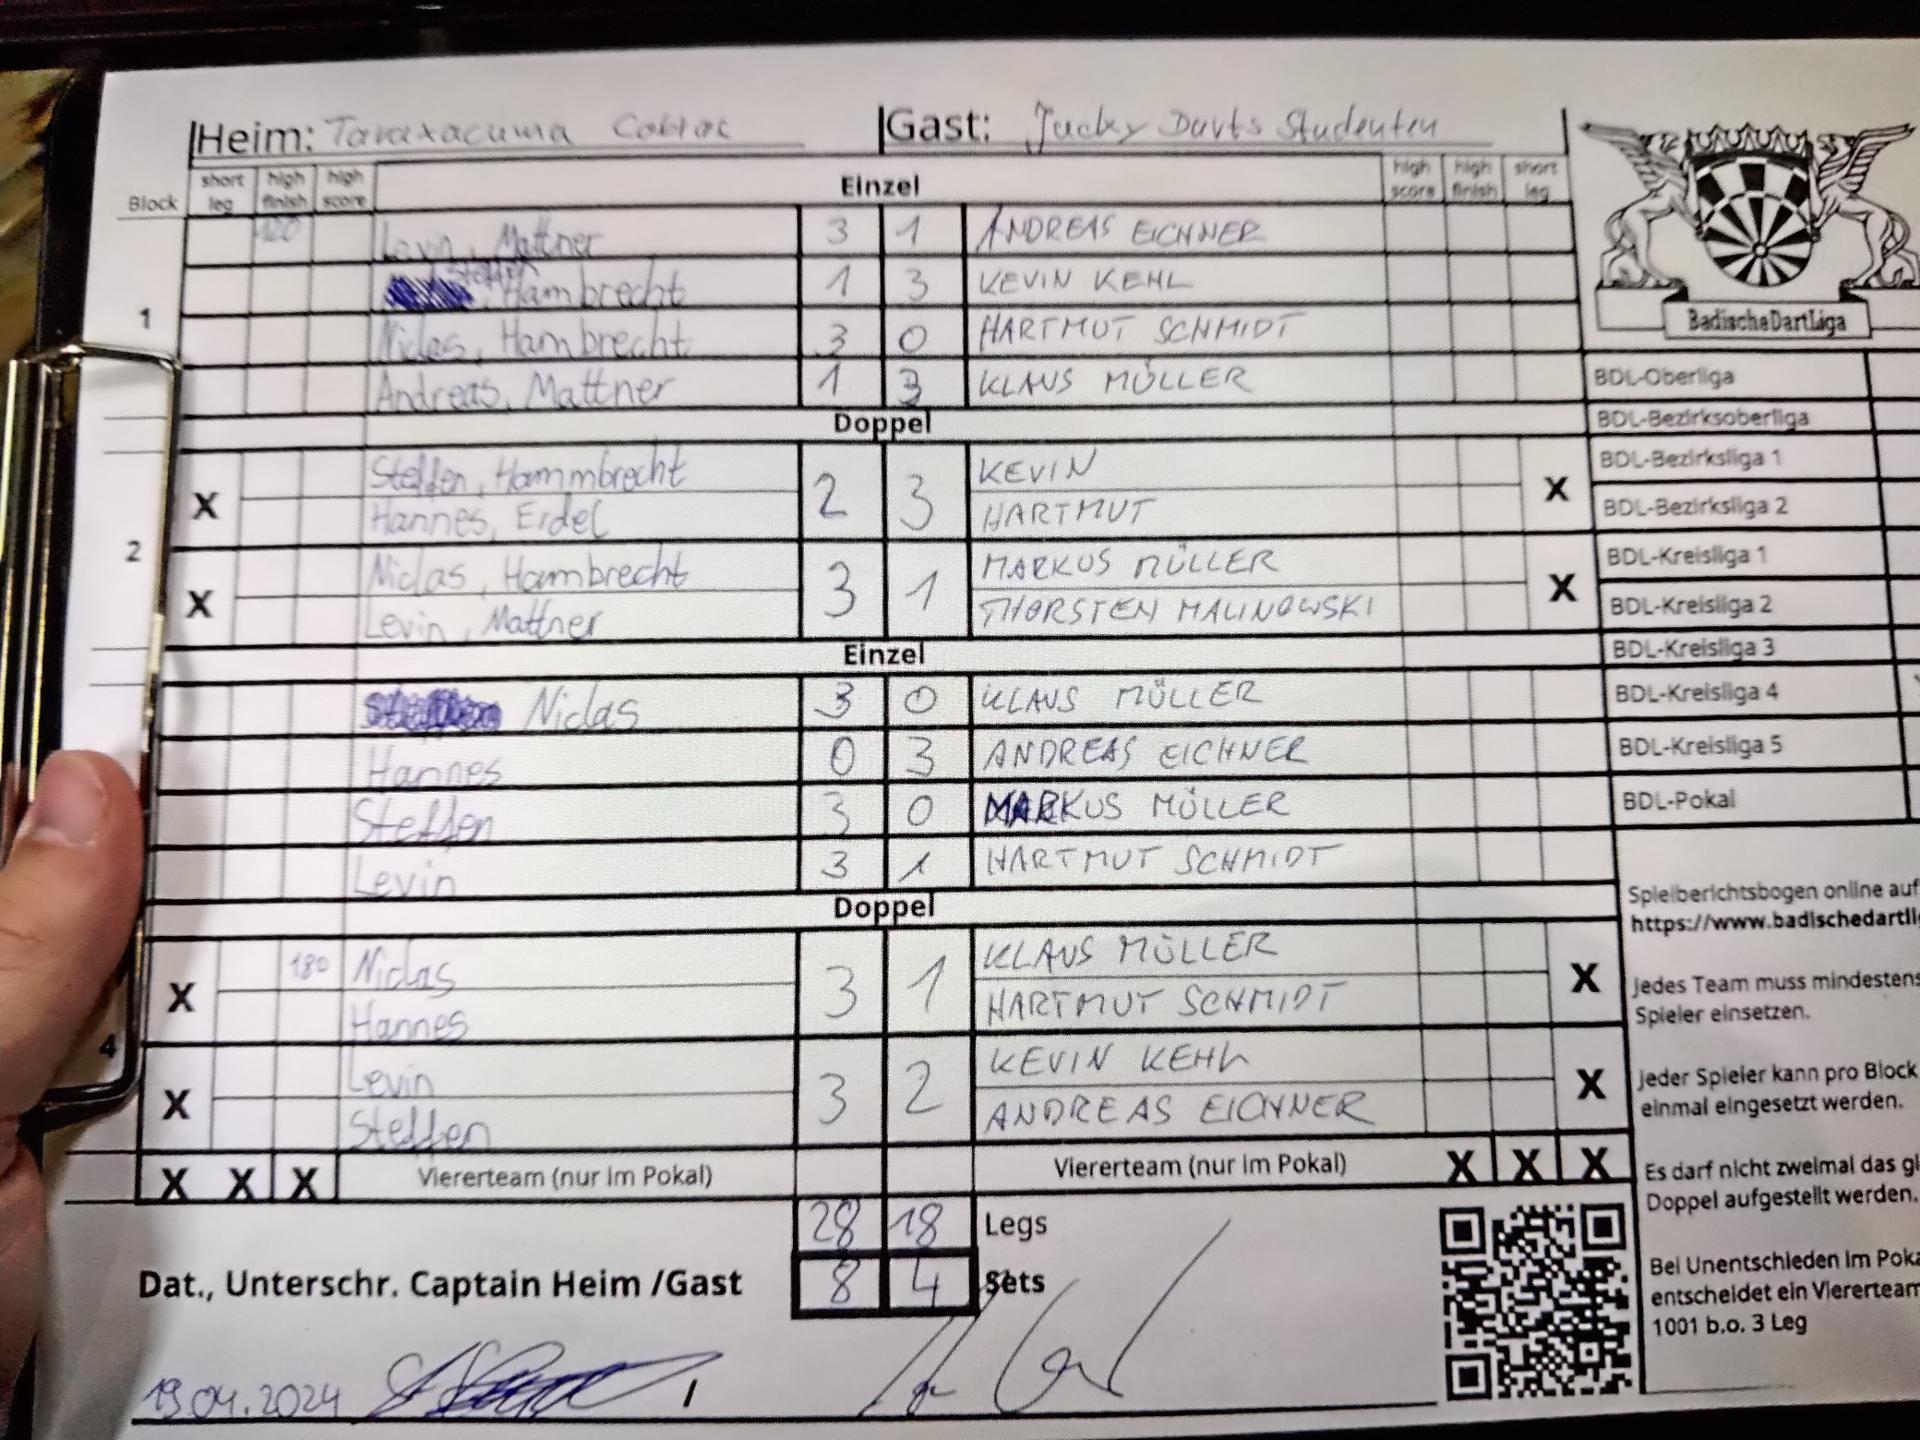 Heim: Taraxacuma Gast: Jucky Darts Studenten
Block short leg high finish high score Einzel high score high finish short leg
120 Levin, Mattner 3 1 ANDREAS EICHNER
Steffen Hambrecht 1 3 KEVIN KEHL
1
Niclas, Hambrecht 3 0 HARTMUT SCHMIDT
Andreas, Mattner 1 3 KLAUS MÜLLER
Doppel
Steffen, Hammbrecht KEVIN
X 2 3 X
Hannes, Erdel HARTMUT
2
Niclas, Hambrecht MARKUS MÜLLER
X 3 1 X
Levin, Mattner THORSTEN MALINOWSKI
Einzel
Niclas 3 0 KLAUS MÜLLER
Hannes 0 3 ANDREAS EICHNER
Steffen 3 0 MARKUS MÜLLER
Levin 3 1 HARTMUT SCHMIDT
Doppel
180 Niclas KLAUS MÜLLER
X 3 1 X
Hannes HARTMUT SCHMIDT
4
Levin KEVIN KEHL
X 3 2 X
Steffen ANDREAS EICHNER
X X X Viererteam (nur im Pokal) Viererteam (nur im Pokal) X X X
28 18 Legs
Dat., Unterschr. Captain Heim /Gast 8 4 Sets
19.04.2024 /
BadischeDartLiga
BDL-Oberliga
BDL-Bezirksoberliga
BDL-Bezirksliga 1
BDL-Bezirksliga 2
BDL-Kreisliga 1
BDL-Kreisliga 2
BDL-Kreisliga 3
BDL-Kreisliga 4
BDL-Kreisliga 5
BDL-Pokal
Spielberichtsbogen online auf
https://www.badischedartli
Jedes Team muss mindestens
Spieler einsetzen.
Jeder Spieler kann pro Block
einmal eingesetzt werden.
Es darf nicht zweimal das gl
Doppel aufgestellt werden.
Bei Unentschieden im Poka
entscheidet ein Viererteam
1001 b.o. 3 Leg